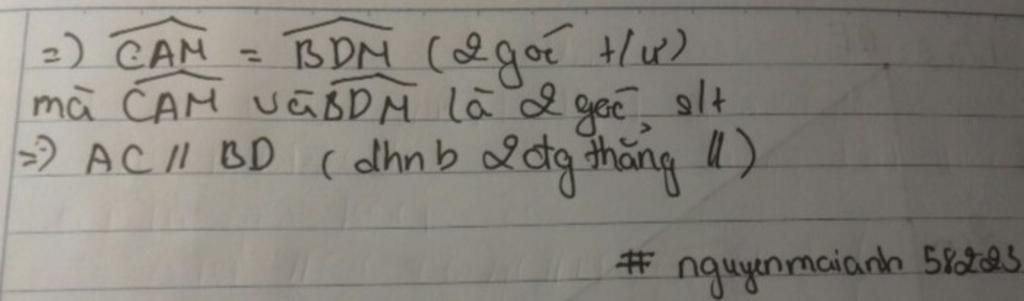 =) \widehat{CAM} = \widehat{BDM} (2 góc t/ư)
mà \widehat{CAM} và \widehat{BDM} là 2 góc slt
=) AC // BD (dhnb 2 đtg thẳng //)
# nguyenmaianh 58223